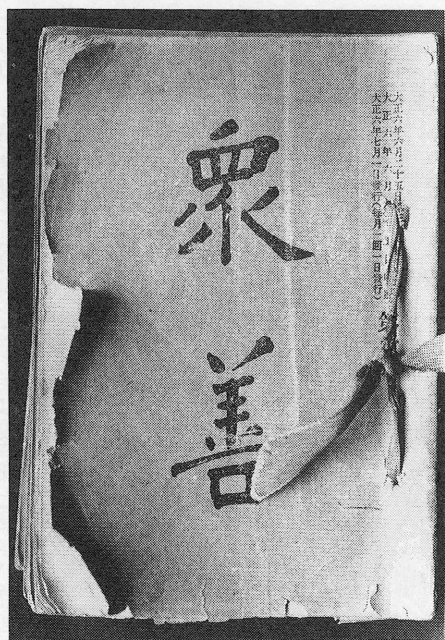 大正六年六月二十五日
大正六年六月
大正六年七月一日發行(每月一回一日發行)
衆善